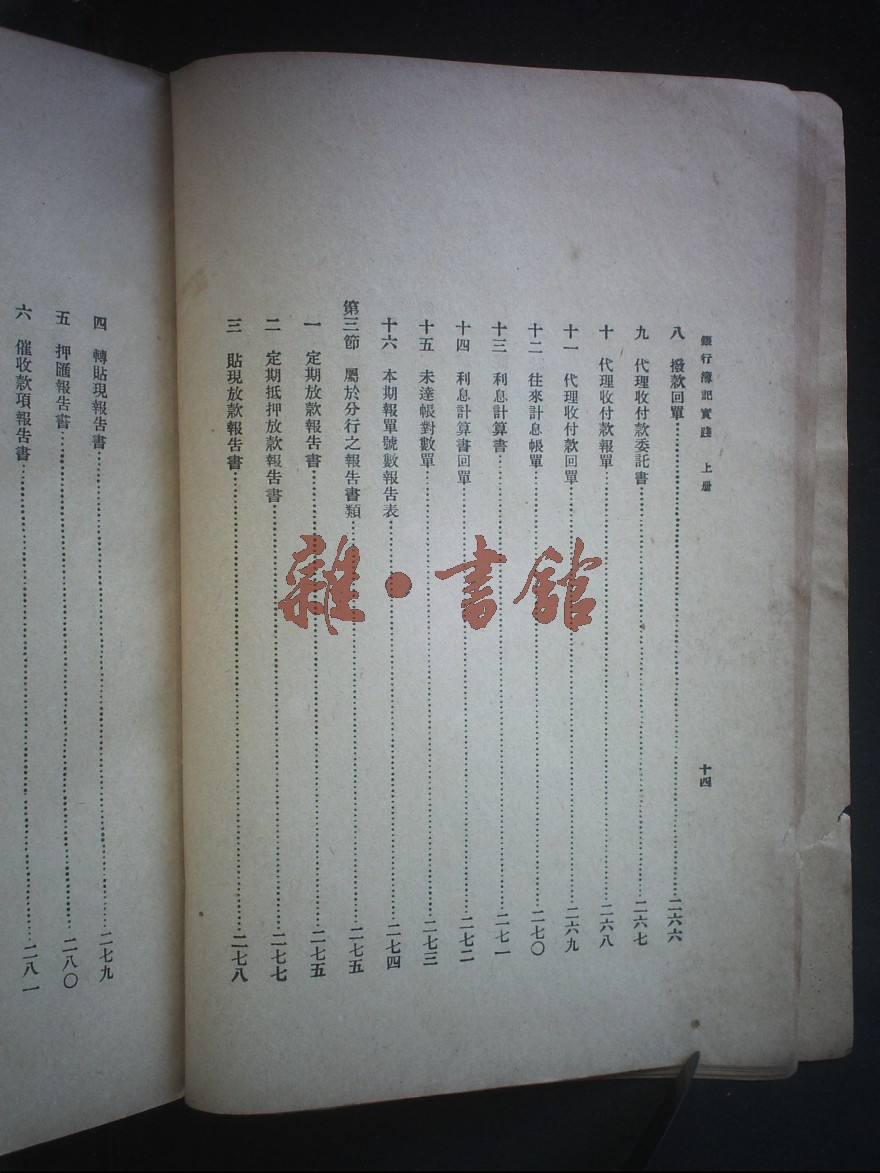 銀行簿記實踐 上册
十四
八 撥款回單……二六六
九 代理收付款委託書……二六七
十 代理收付款報單……二六八
十一 代理收付款回單……二六九
十二 往來計息帳單……二七〇
十三 利息計算書……二七一
十四 利息計算書回單……二七二
十五 未達帳對數單……二七三
十六 本期報單號數報告表……二七四
第三節 屬於分行之報告書類……二七五
一 定期放款報告書……二七五
二 定期抵押放款報告書……二七七
三 貼現放款報告書……二七八
四 轉貼現報告書……二七九
五 押匯報告書……二八〇
六 催收款項報告書……二八一
雜·書館